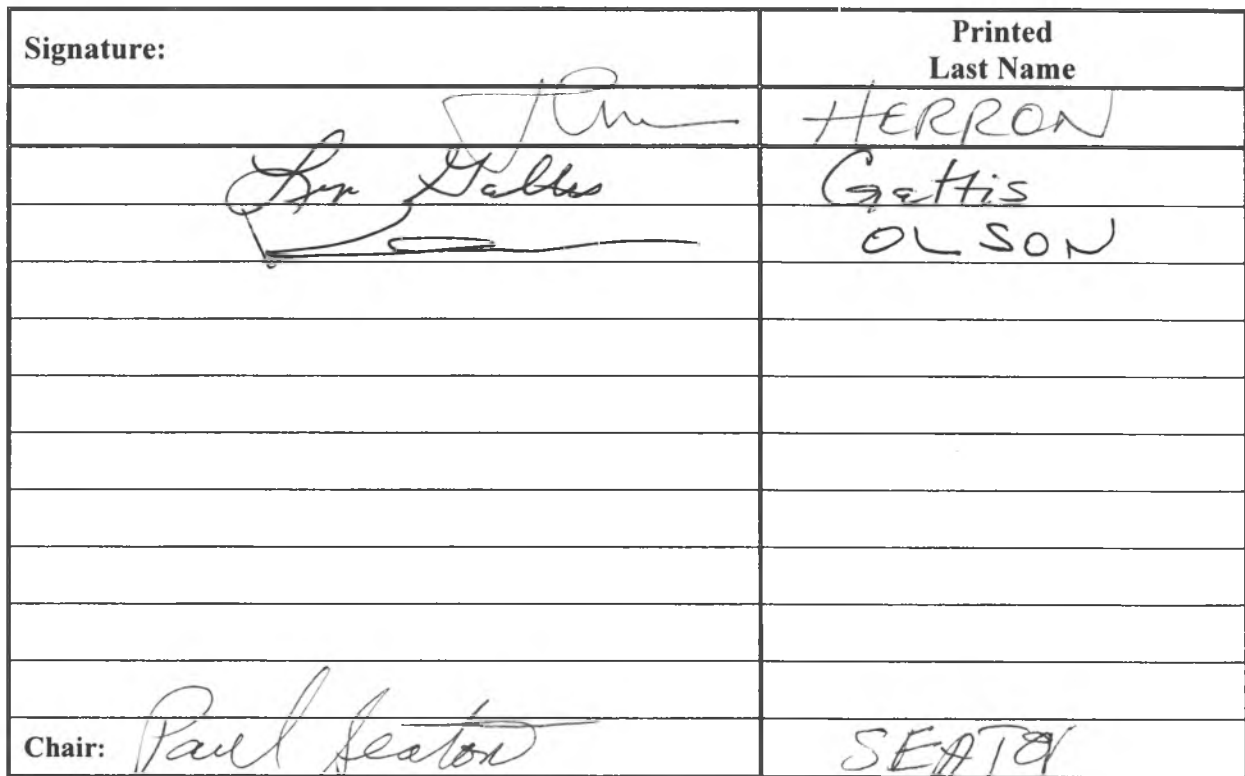 Signature: Printed
Last Name
HERRON
Gattis
OLSON
Chair: Paul Seaton SEATON